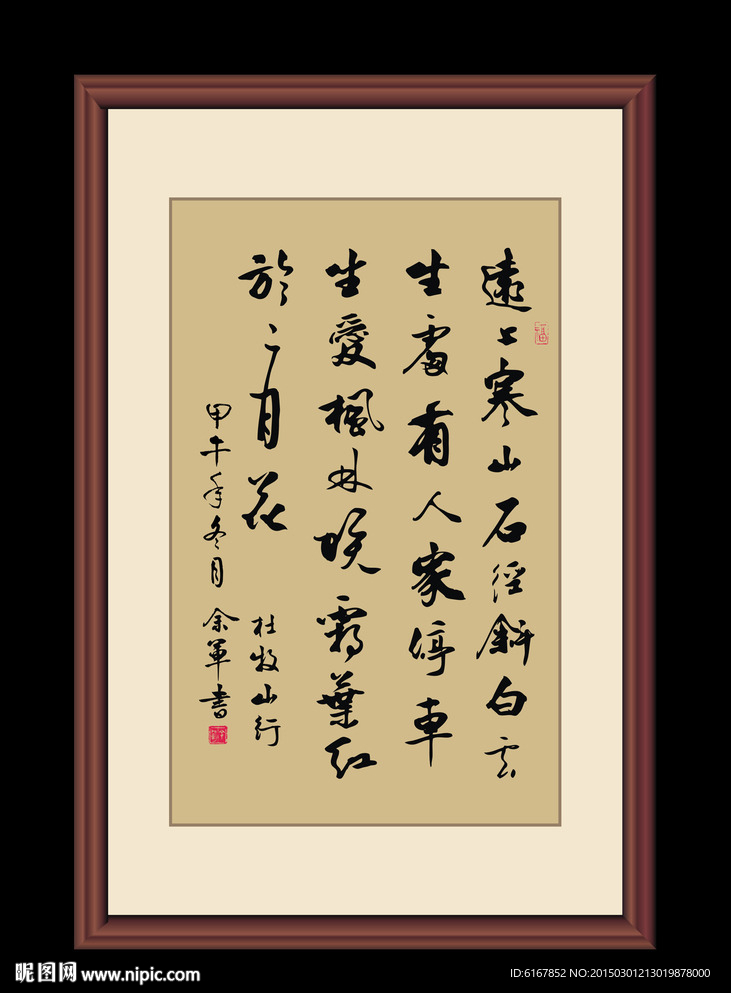 遠上寒山石徑斜白云
生處有人家停車
坐愛楓林晚霜葉紅
於二月花
杜牧山行
甲午年冬月 余軍書
昵图网 www.nipic.com
ID:6167852 NO:20150301213019878000